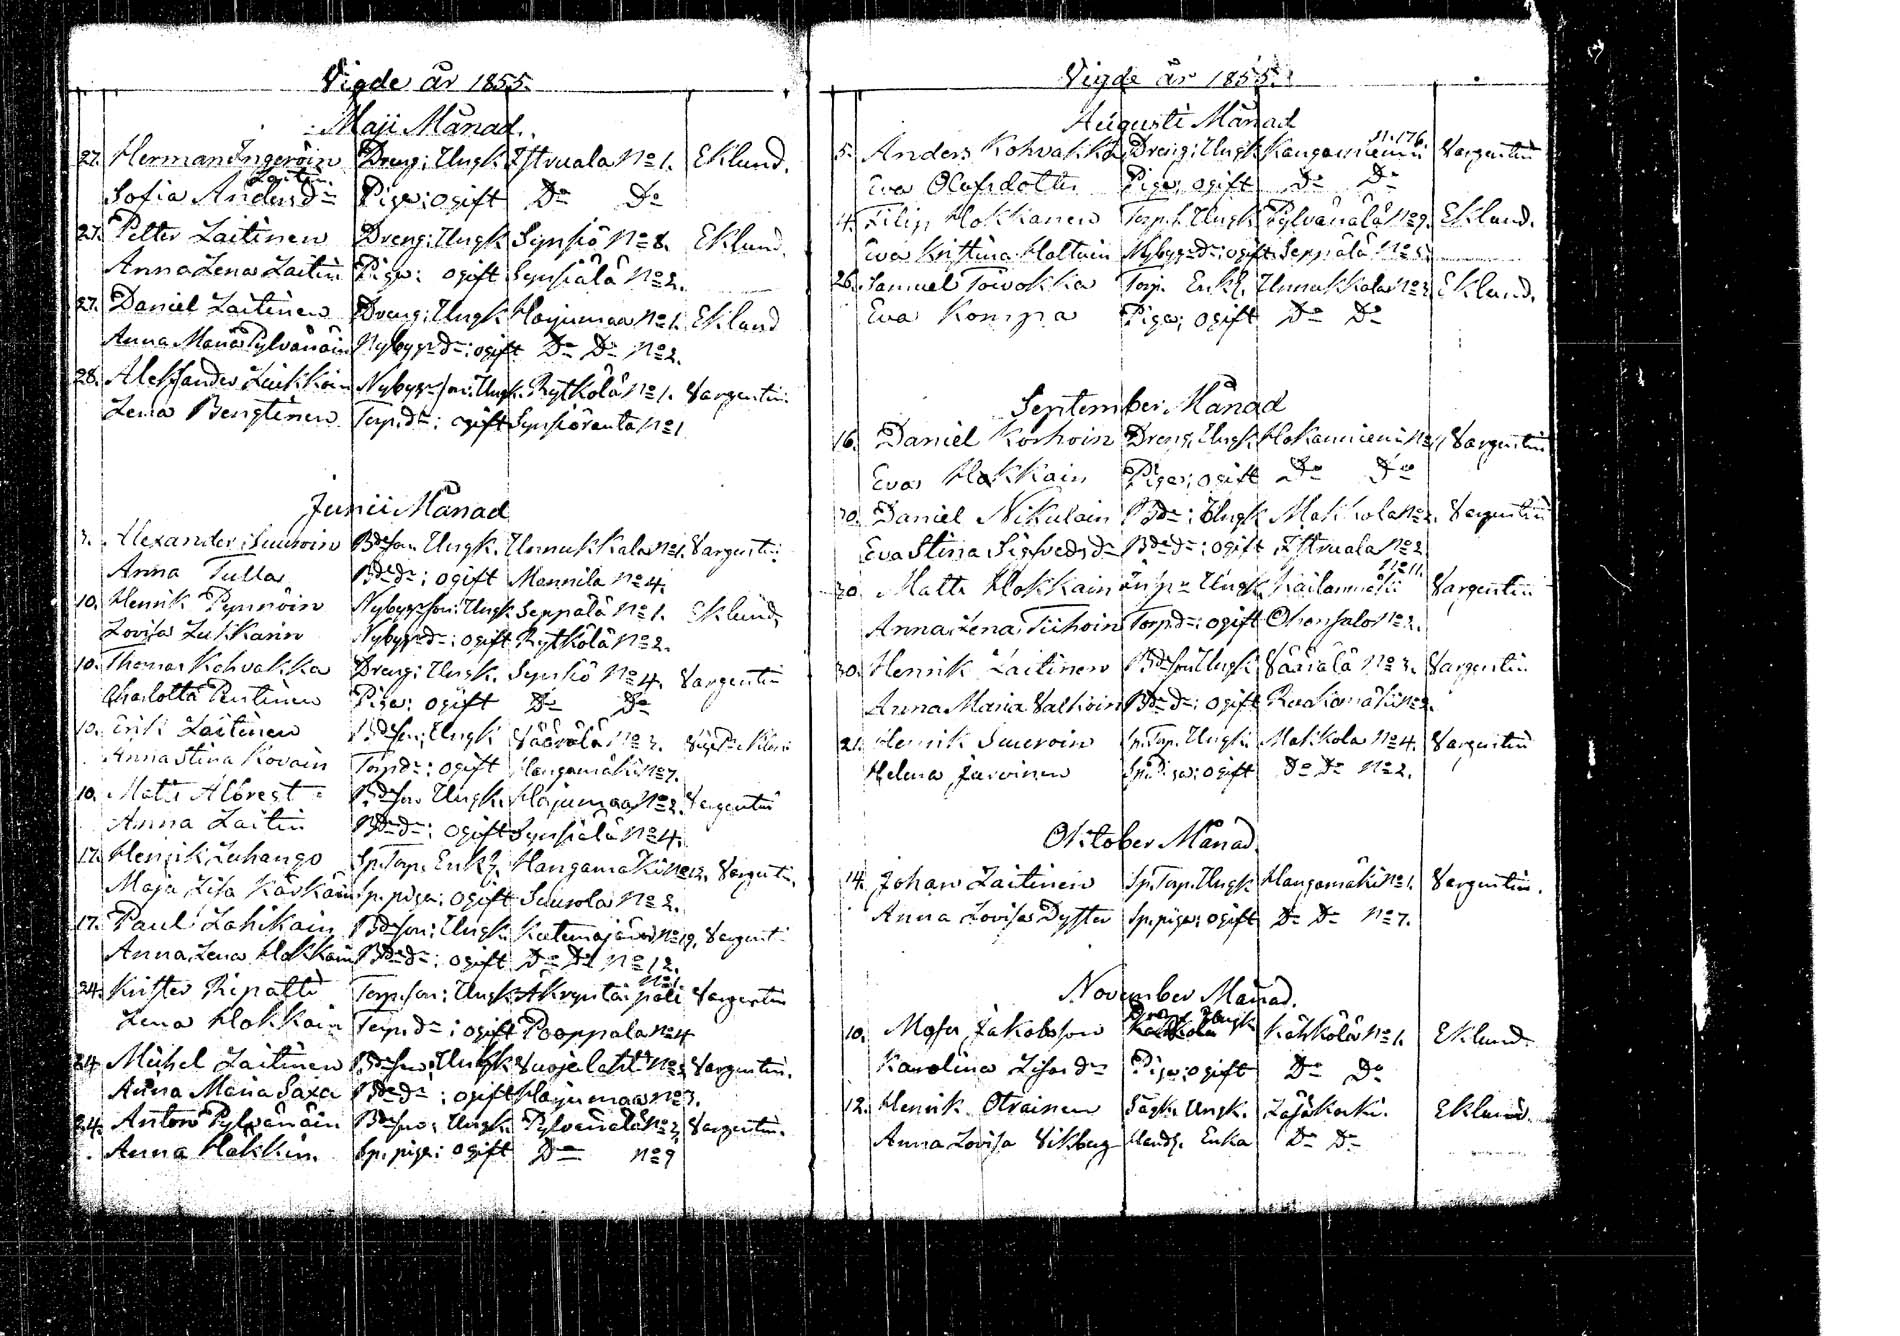 Vigde år 1855.
Maji Månad.
27. Herman Ingeroin Dreng: Ungk. Istruala No 1. Eklund.
Laitin.
Sofia Andersdr Piga: ogift Do Do
27. Petter Laitinen Dreng: Ungk Synsiö No 8. Eklund.
Anna Lena Laitin Piga: ogift Synsiälä No 2.
27. Daniel Laitinen Dreng: Ungk Harjumaa No 1. Eklund
Anna Maria Pylvänäin Nybygs dr: ogift Do Do No 2.
28. Aleksander Leikkoin Nybygs son: Ungk. Rytkölä No 1. Vargentin
Lena Bengtinen Torp. dr: ogift Synsiöranta No 1
Junii Månad
3. Alexander Suuroin Bdeson Ungk. Unnukkala No 1. Vargentin
Anna Tulla Bdedr: ogift Mannila No 4.
10. Henrik Pynnöin Nybygs son: Ungk Seppälä No 1. Eklund.
Lovisa Lukkarin Nybygs dr: ogift Rytkölä No 2.
10. Thomas Kohvakka Dreng: Ungk. Synsiö No 4. Vargentin
Charlotta Pentinen Piga: ogift Do Do
10. Erik Laitinen Bdeson: Ungk Väärälä No 3.
Anna Stina Kovain Torp dr: ogift Hangamäki No 7.
10. Matts Albregt Bdeson Ungk. Harjumaa No 2. Vargentin
Anna Laitin Bdedr: ogift Synsiälä No 4.
17. Henrik Luhango Sp. Torp. Enkl. Hangamäki No 13. Vargentin.
Maja Lisa Kärkäin Sp. piga: ogift Suurola No 2.
17. Paul Lahikain Bdeson: Ungk. Koitunajärvi No 19, Vargenti
Anna Lena Hokkain Bdedr: ogift Do Do No 12.
No 1.
24. Krister Ripatti Torp. son: Ungk. Akryntäi päli Vargentin
Lena Hokkain Torp. dr: ogift Pooppala No 4
24 Michel Laitinen Bdeson: Ungk Suojalaht No 3 Vargentin.
Anna Maria Saxa Bdedr: ogift Harjumaa No 3.
24. Anton Pylvänäin Bdeson: Ungk. Pylvänälä No 2, Vargentin.
Anna Häkkin. Sp. piga: ogift Do No 9
Vigde år 1855.
Augusti Månad
N. 176.
5. Anders Kohvakka Dreng: Ungk Kangasniemi Vargentin
Eva Olofsdotter Piga: ogift Do Do
4. Filip Hokkanen Torp. s. Ungk. Pylvänälä No 9. Eklund.
Eva Kristina Holtuin Nybygs dr: ogift Seppälä No 5.
26. Samuel Toivakka Torp. Enkl. Unnukkala No 3, Eklund.
Eva Kompa Piga: ogift Do Do
September Månad
16. Daniel Korhoin Dreng. Ungk. Hokanniemi No 1, Vargentin
Eva Hokkain Piga: ogift Do Do
30. Daniel Nikulain Bde: Ungk Makkola No 2. Vargentin
Eva Stina Sigfredsdr Bdedr: ogift Istruala No 2
No 11.
30. Matts Hokkain Ungk Kailanmäki Vargentin
Anna Lena Tiihoin Torp. dr: ogift Ohensalo No 2.
30. Henrik Laitinen Bdeson Ungk Väärälä No 3. Vargentin
Anna Maria Valkoin Bdedr: ogift Ruokomäki No 2.
21. Henrik Suuroin Sp. Torp. Ungk. Makkola No 4. Vargentin
Helena Järvinen Sp. Piga: ogift Do Do No 2.
Oktober Månad.
14. Johan Laitinen Sp. Torp. Ungk Hangamäki No 1. Vargentin.
Anna Lovisa Dyster Sp. piga: ogift Do Do No 7.
November Månad.
Dreng Ungk
10. Moses Jakobsson Kähkölä No 1. Eklund.
Karolina Lisasdr Piga: ogift Do Do
12. Henrik Otrainen Ungk. Eklund.
Anna Lovisa Vikberg Enka Do Do